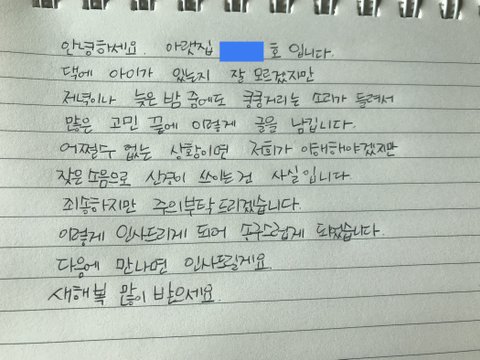 안녕하세요. 아랫집 호 입니다.
댁에 아이가 있는지 잘 모르겠지만
저녁이나 늦은 밤 중에도 쿵쿵거리는 소리가 들려서
많은 고민 끝에 이렇게 글을 남깁니다.
어쩔수 없는 상황이면 저희가 이해해야겠지만
잦은 소음으로 신경이 쓰이는건 사실입니다.
죄송하지만 주의부탁드리겠습니다.
이렇게 인사드리게 되어 송구스럽게 되었습니다.
다음에 만나면 인사드릴게요.
새해복 많이 받으세요.